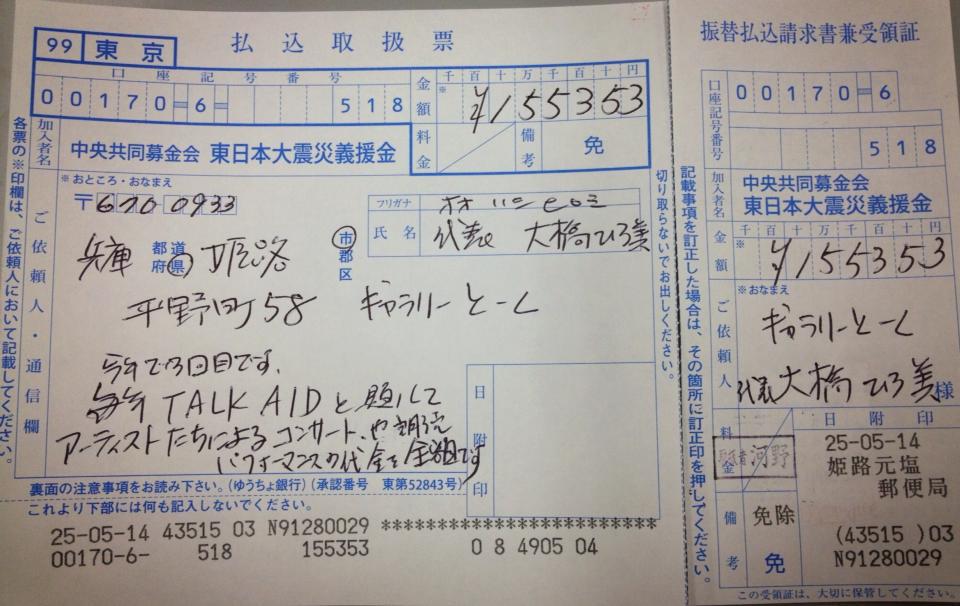 99 東京 払込取扱票
口座記号番号
千百十万千百十円
00170=6= 518
金額 ※ ¥155353
料金 備考 免
加入者名 中央共同募金会 東日本大震災義援金
各票の※印欄は、ご依頼人において記載してください。
ご依頼人・通信欄
※おところ・おなまえ
〒670 0933
フリガナ
氏名 代表 大橋ひろ美
兵庫 都道府県 姫路 市郡区
平野町58 ギャラリーとーく
今年で3回目です。
毎年 TALK AIDと題して
アーティストたちによるコンサート、や朗読
パフォーマンスの代金を全額です
日附印
裏面の注意事項をお読み下さい。(ゆうちょ銀行)(承認番号 東第52843号)
これより下部には何も記入しないでください。
25-05-14 43515 03 N91280029 **************************
00170-6- 518 155353 0 8 4905 04
切り取らないでお出しください。
記載事項を訂正した場合は、その箇所に訂正印を押してください。
振替払込請求書兼受領証
口座記号番号 00170=6
518
加入者名 中央共同募金会
東日本大震災義援金
千百十万千百十円
金額 ※ ¥155353
ご依頼人 ※おなまえ
ギャラリーとーく
代表 大橋ひろ美 様
料金 河野
日附印
25-05-14
姫路元塩
郵便局
備考 免除
免
(43515 )03
N91280029
この受領証は、大切に保管してください。